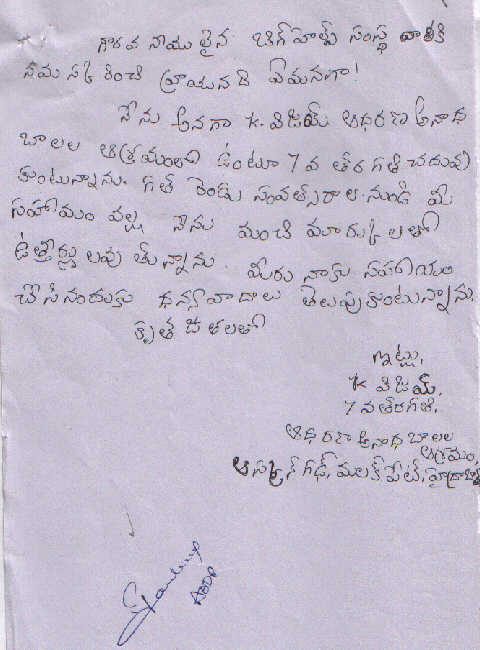 గౌరవ నీయులైన బిగ్ హెల్ప్ సంస్థ వారికి
నమస్కరించి వ్రాయునది ఏమనగా!
నేను అనగా K. విజయ్ ఆధరణ అనాధ
బాలల ఆశ్రమంలో ఉంటూ 7వ తరగతి చదువు
కుంటున్నాను. గత రెండు సంవత్సరాల నుండి మీ
సహాయం వల్ల నేను మంచి మార్కులతో
ఉత్తీర్ణులవు తున్నాను. మీరు నాకు సహాయం
చేసినందుకు ధన్యవాదాలు తెలుపుకుంటున్నాను.
కృతజ్ఞతలతో
ఇట్లు,
K విజయ్.
7వ తరగతి.
ఆధరణ అనాధ బాలల
ఆశ్రమం,
ఆస్మాన్ గఢ్, మలక్ పేట్, హైద్రాబాద్